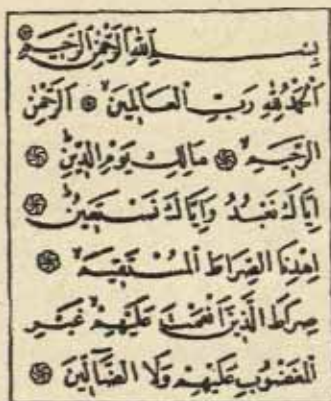 بِسْمِ اللهِ الرَّحْمٰنِ الرَّحِيمِ ۝
اَلْحَمْدُ لِلّٰهِ رَبِّ الْعَالَمِينَ ۝ اَلرَّحْمٰنِ
الرَّحِيمِ ۝ مَالِكِ يَوْمِ الدِّينِ ۝
اِيَّاكَ نَعْبُدُ وَاِيَّاكَ نَسْتَعِينُ ۝
اِهْدِنَا الصِّرَاطَ الْمُسْتَقِيمَ ۝
صِرَاطَ الَّذِينَ اَنْعَمْتَ عَلَيْهِمْ غَيْرِ
الْمَغْضُوبِ عَلَيْهِمْ وَلَا الضَّالِّينَ ۝